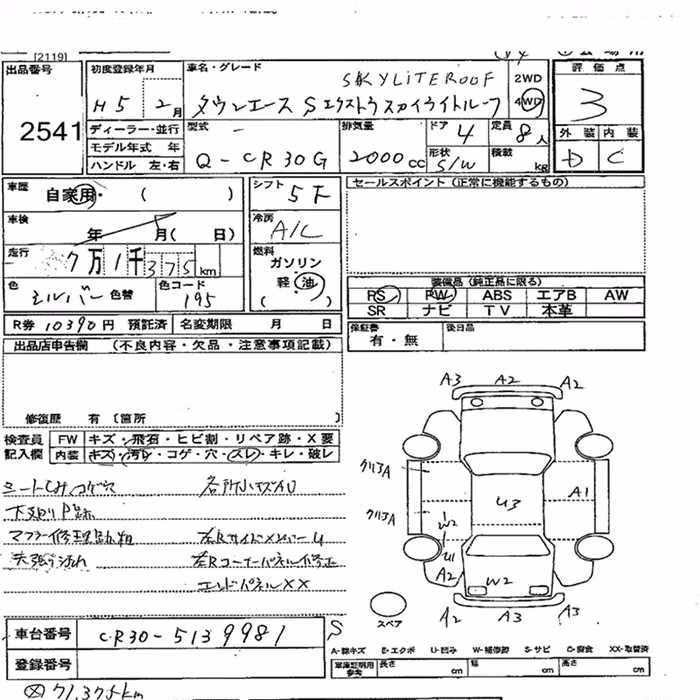 [2119]
出品番号 初度登録年月 車名・グレード 2WD 評価点
SKYLITEROOF
2541 H5 2月 タウンエース Sエクストラスカイライトルーフ 4WD 3
ディーラー・並行 型式 排気量 ドア 4 定員 8人 外装 内装
モデル年式 年 Q-CR30G 2000cc 形状 S/W 積載 kg D C
ハンドル 左・右
車歴 自家用・( ) シフト 5F セールスポイント(正常に機能するもの)
車検 年 月( 日) 冷房 A/C
走行 7万1千375km 燃料 ガソリン
軽油
( )
色 シルバー 色替 色コード 195
装備品(純正品に限る)
PS PW ABS エアB AW
SR ナビ TV 本革
R券 10390円 預託済 名変期限 月 日 保証書 有・無 後日品
出品店申告欄 (不良内容・欠品・注意事項記載)
修復歴 有〔箇所 〕
検査員 FW キズ・飛石・ヒビ割・リペア跡・X要
記入欄 内装 キズ・汚レ・コゲ・穴・スレ・キレ・破レ
シートしみ コゲ穴 各所小キズAU
マフラー修理
左Rコーナーパネル修正
エンドパネルXX
A3 A2 A2
クリアA
U3 A1
クリアA
W2
U1
A2 W2
A2 A3 A3
スペア
車台番号 CR30-5139981 S
登録番号
A-線キズ E-エクボ U-凹み W-補修跡 S-サビ C-腐食 XX-取替済
車庫証明用参考 長さ cm 幅 cm 高さ cm
71,375km